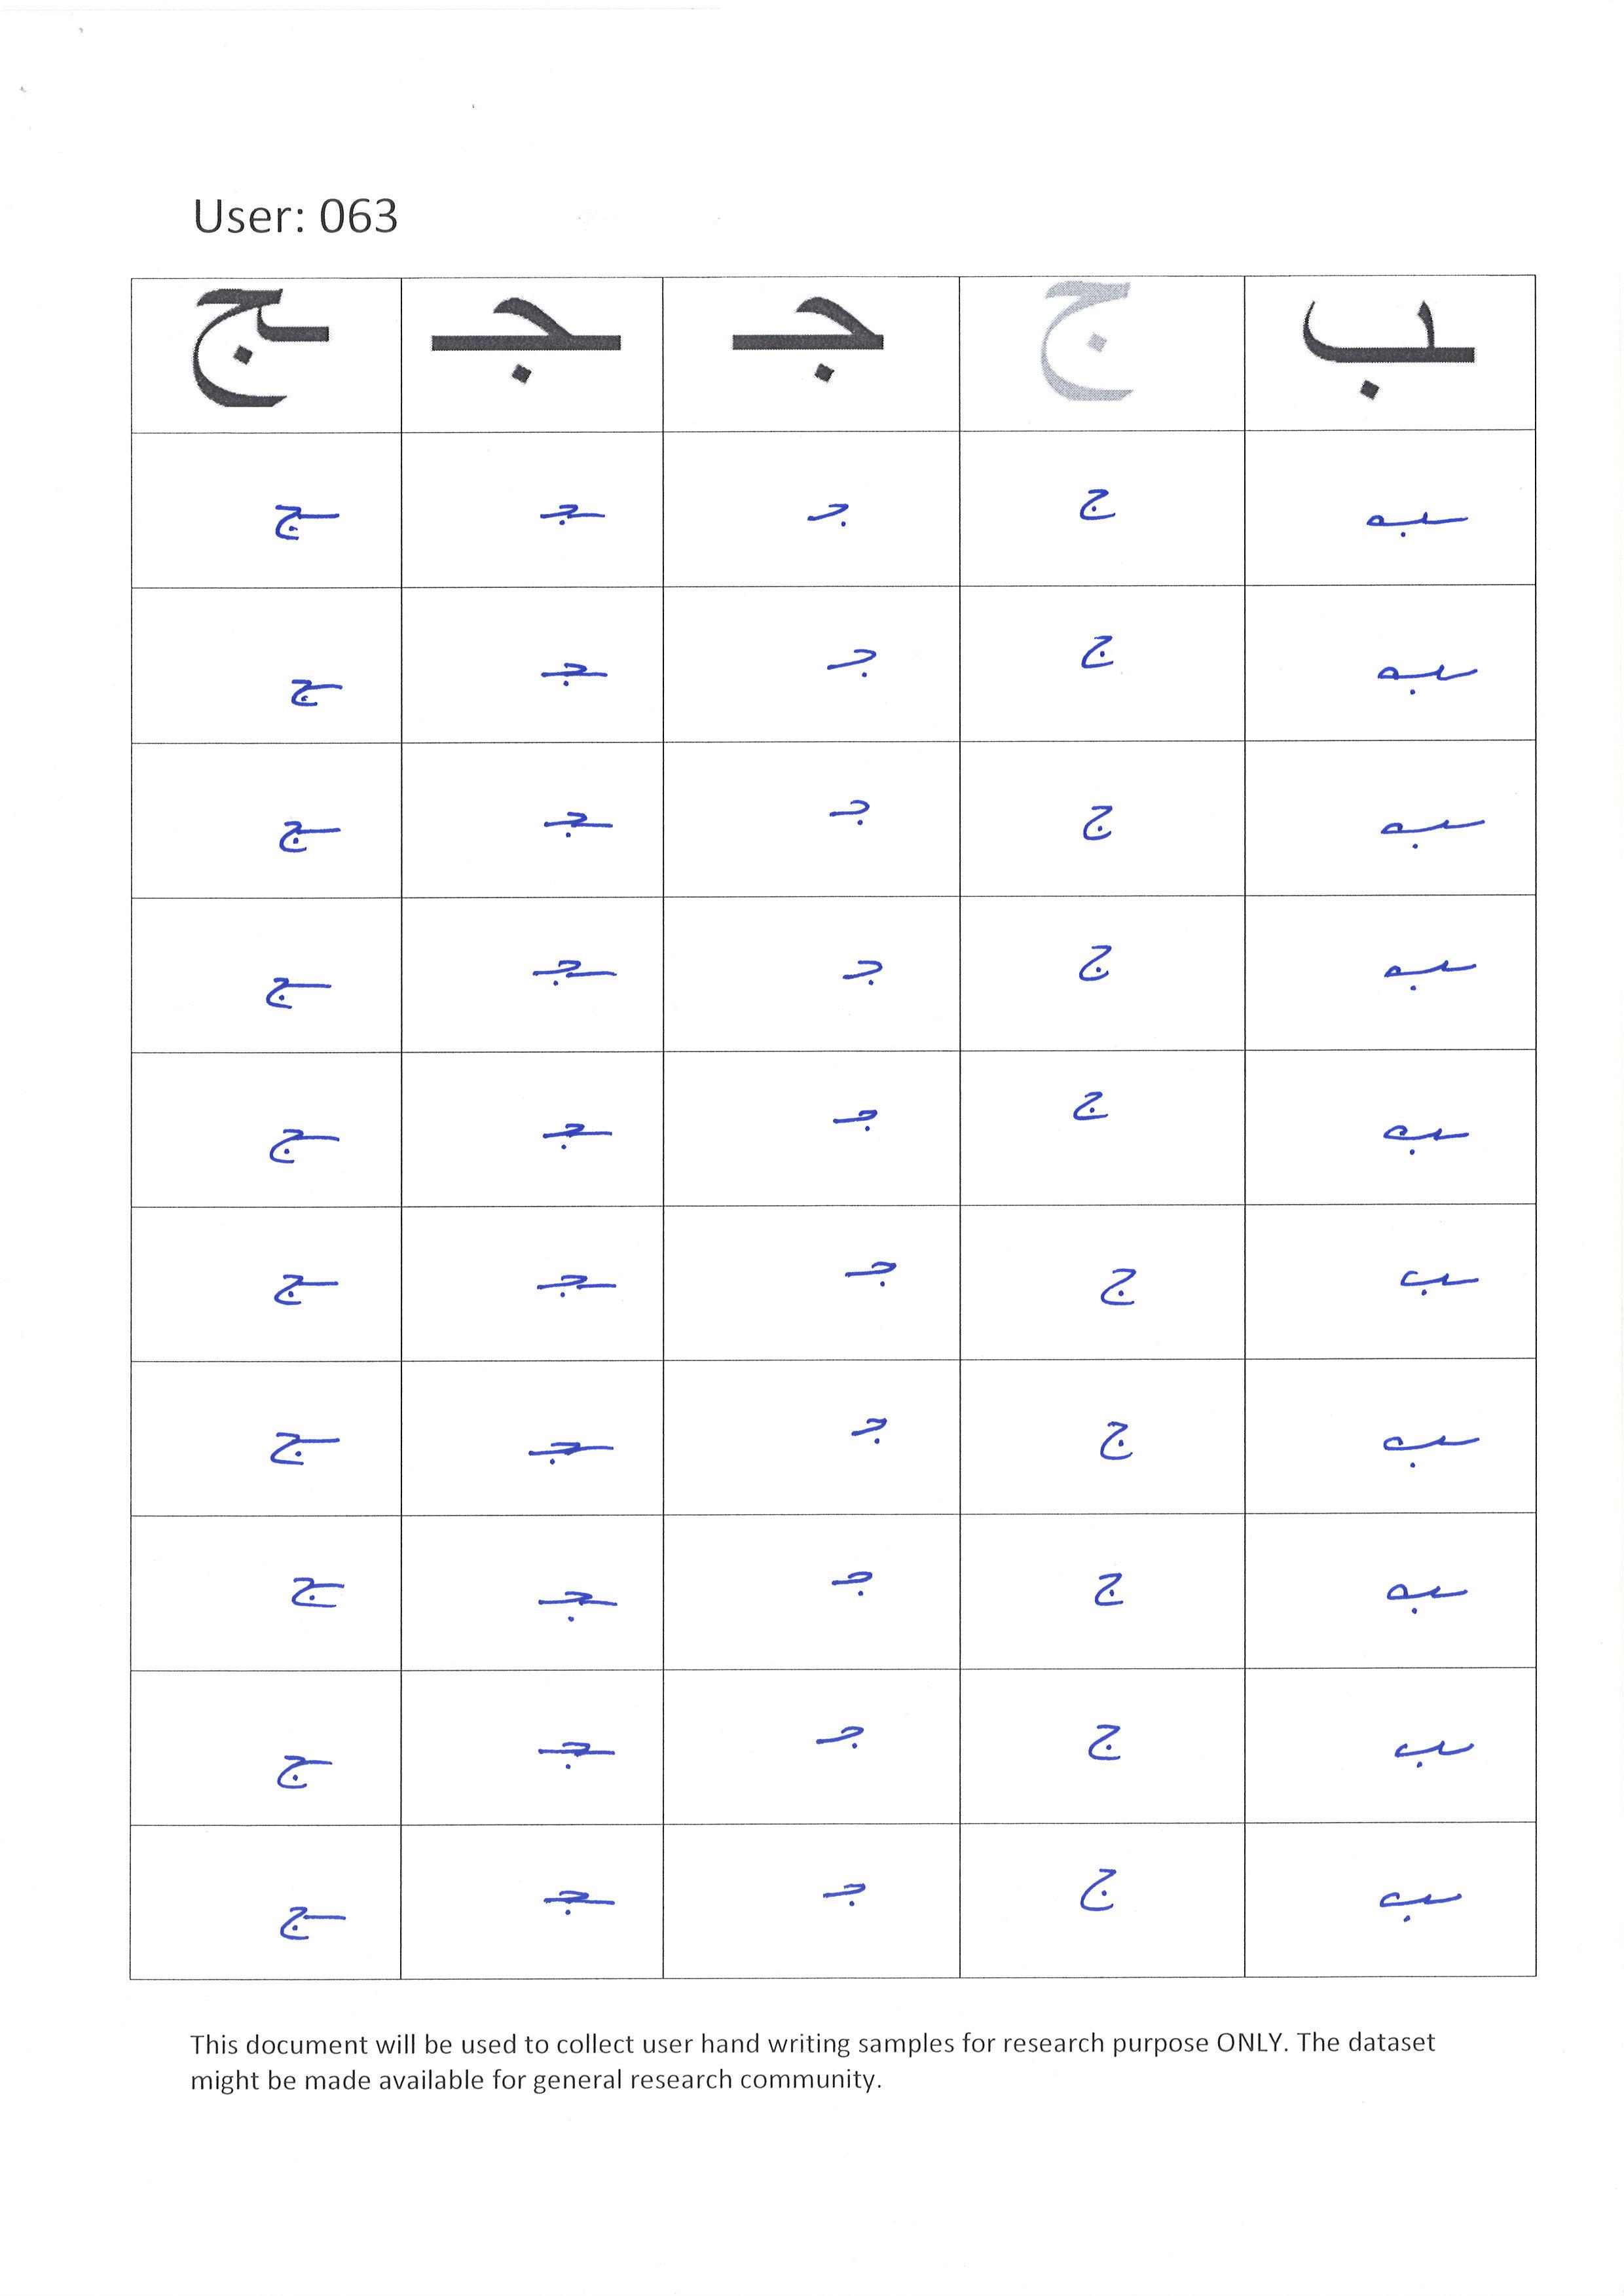 User: 063
ـب ج جـ ـجـ ـج
ـب ج جـ ـجـ ـج
ـب ج جـ ـجـ ـج
ـب ج جـ ـجـ ـج
ـب ج جـ ـجـ ـج
ـب ج جـ ـجـ ـج
ـب ج جـ ـجـ ـج
ـب ج جـ ـجـ ـج
ـب ج جـ ـجـ ـج
ـب ج جـ ـجـ ـج
ـب ج جـ ـجـ ـج
This document will be used to collect user hand writing samples for research purpose ONLY. The dataset
might be made available for general research community.